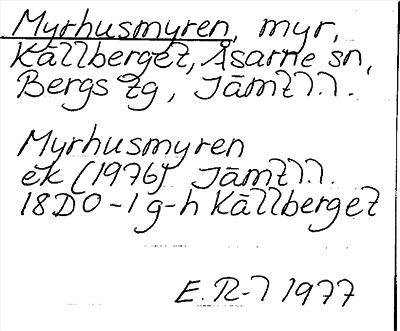 Myrhusmyren, myr,
Källberget, Åsarne sn,
Bergs tg, Jämtl.l.
Myrhusmyren
ek (1976) Jämtl.l.
18D 0-1 g-h Källberget
E. R-l 1977